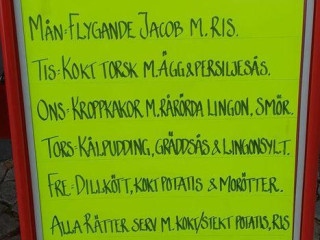 MÅN=FLYGANDE JACOB M. RIS.
TIS=KOKT TORSK M.ÄGG&PERSILJESÅS.
ONS=KROPPKAKOR M.RÅRÖRDA LINGON, SMÖR.
TORS=KÅLPUDDING, GRÄDDSÅS & LINGONSYLT.
FRE=DILLKÖTT, KOKT POTATIS & MORÖTTER.
ALLA RÄTTER SERV M. KOKT/STEKT POTATIS, RIS